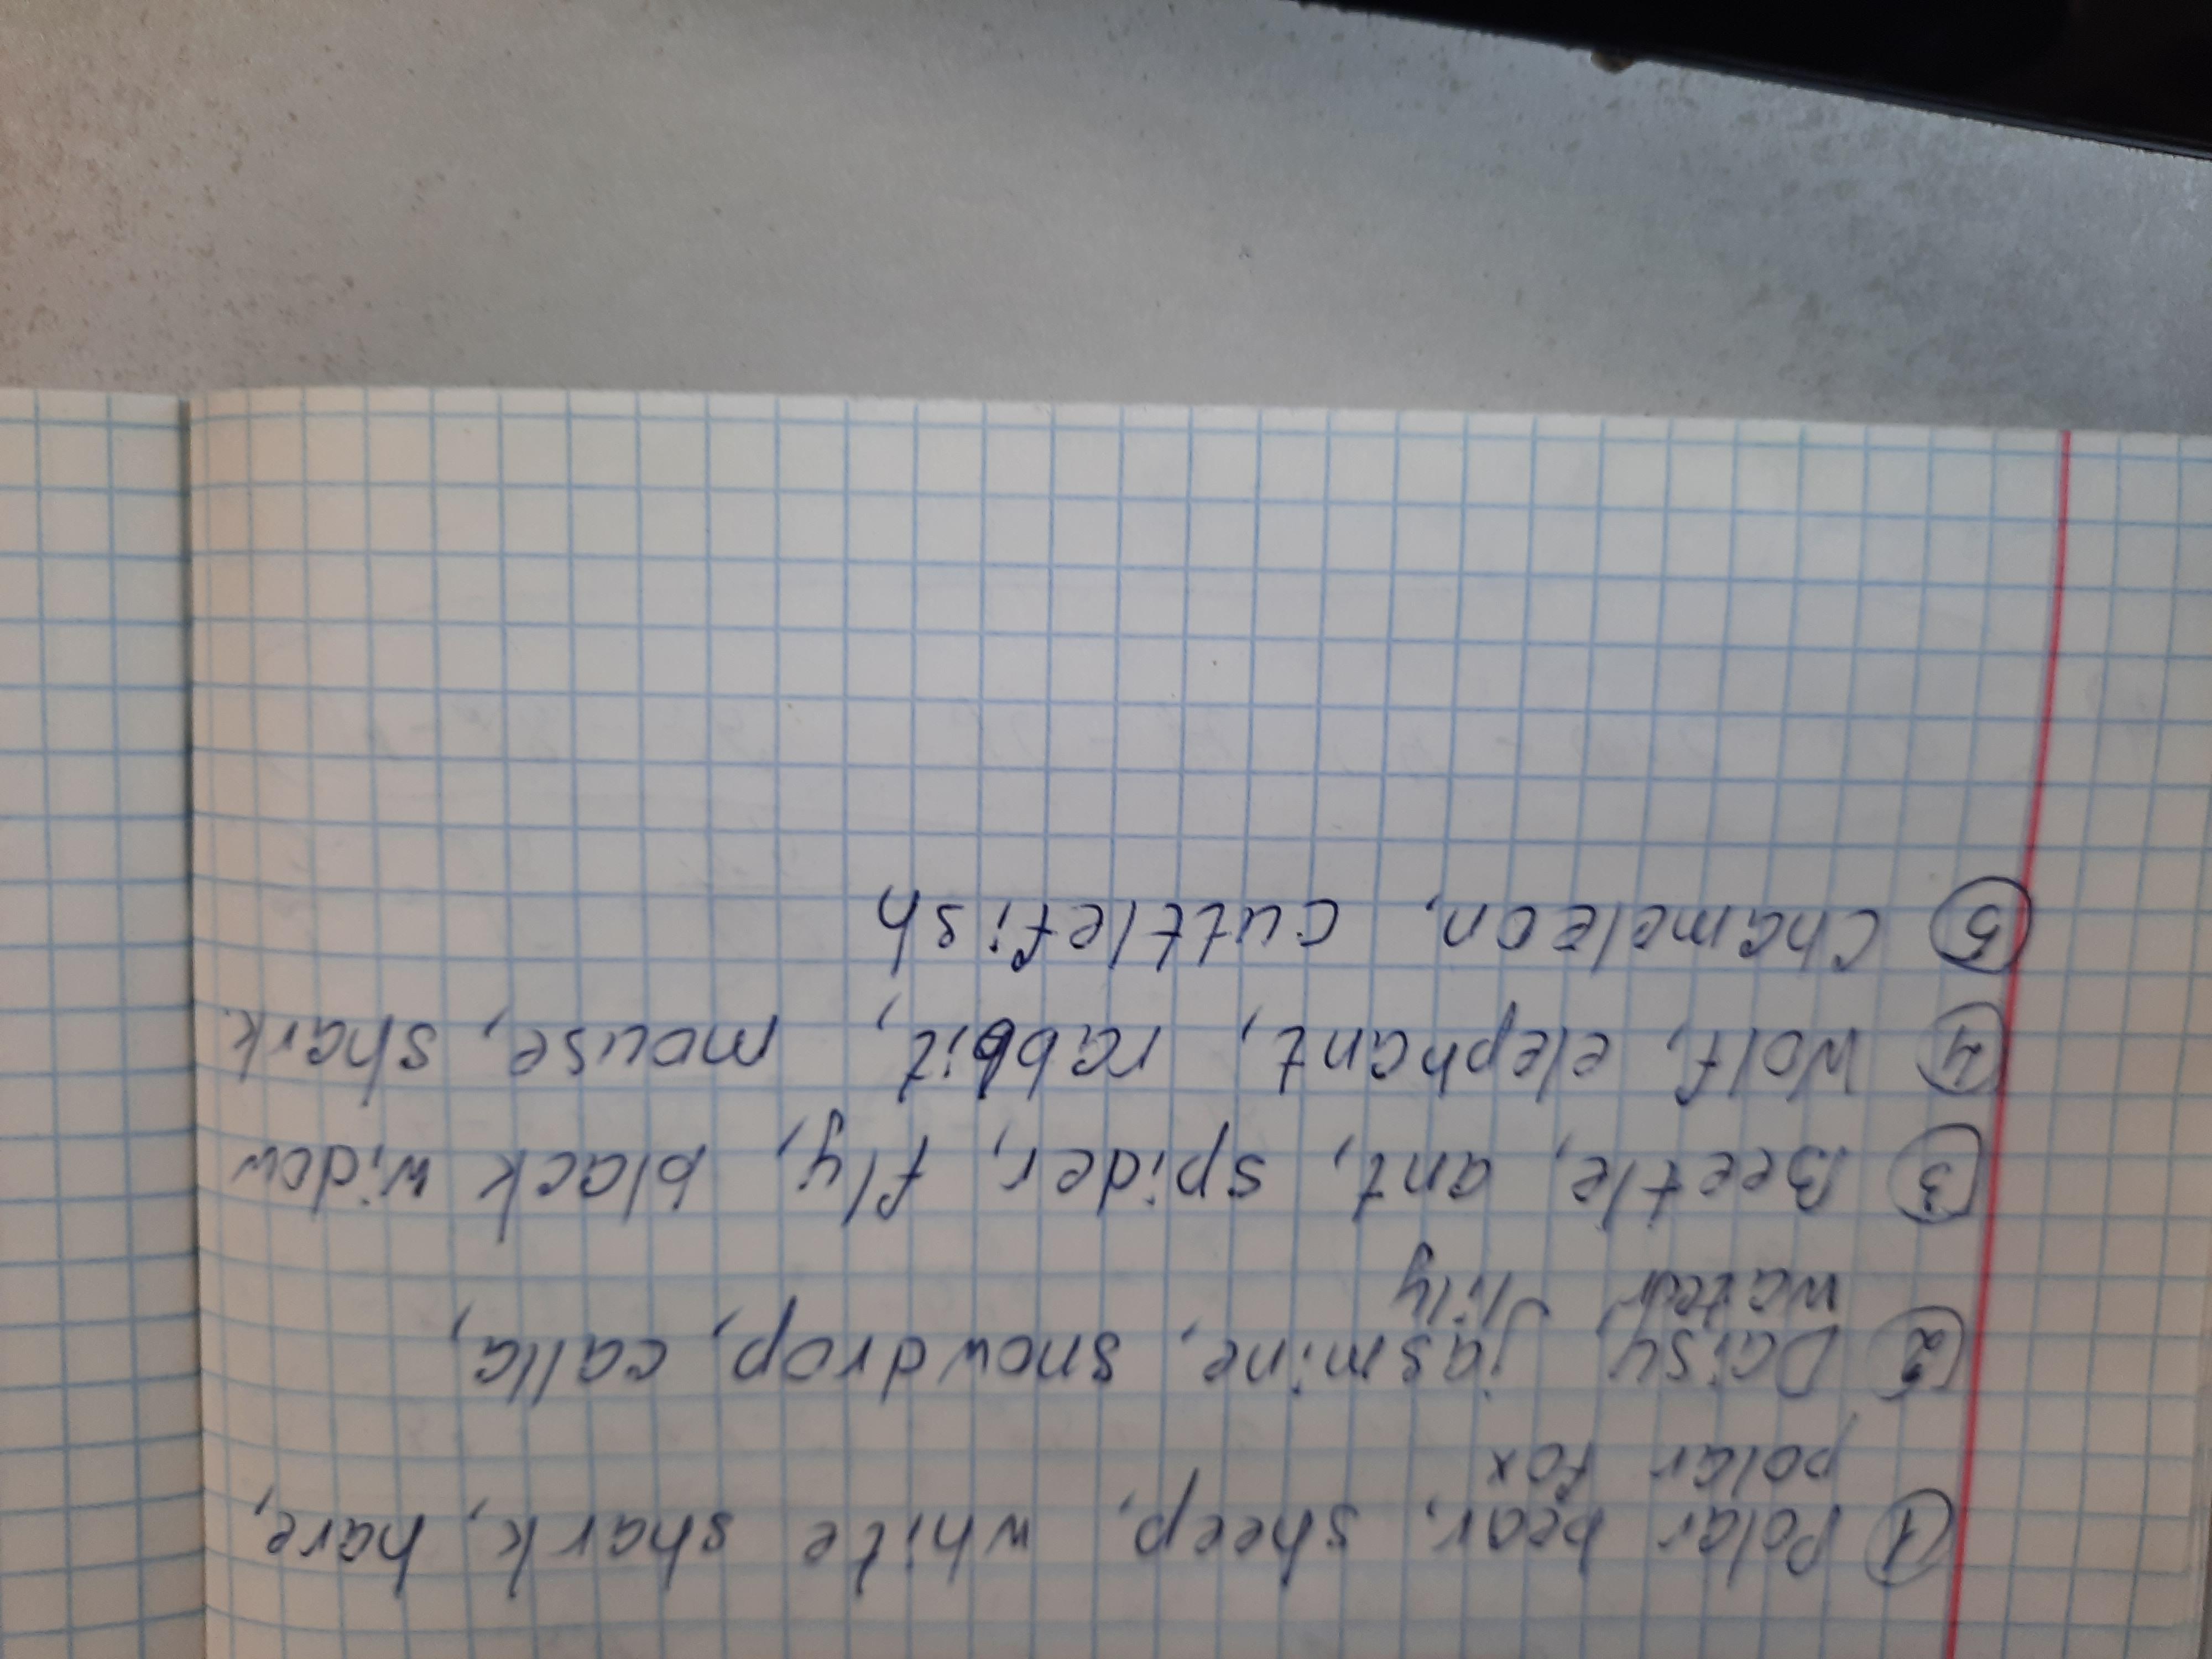 ① Polar bear, sheep, white shark, hare,
polar fox
② Daisy, jasmine, snowdrop, calla,
water lily
③ Beetle, ant, spider, fly, black widow
④ Wolf, elephant, rabbit, mouse, shark.
⑤ Chameleon, cuttlefish